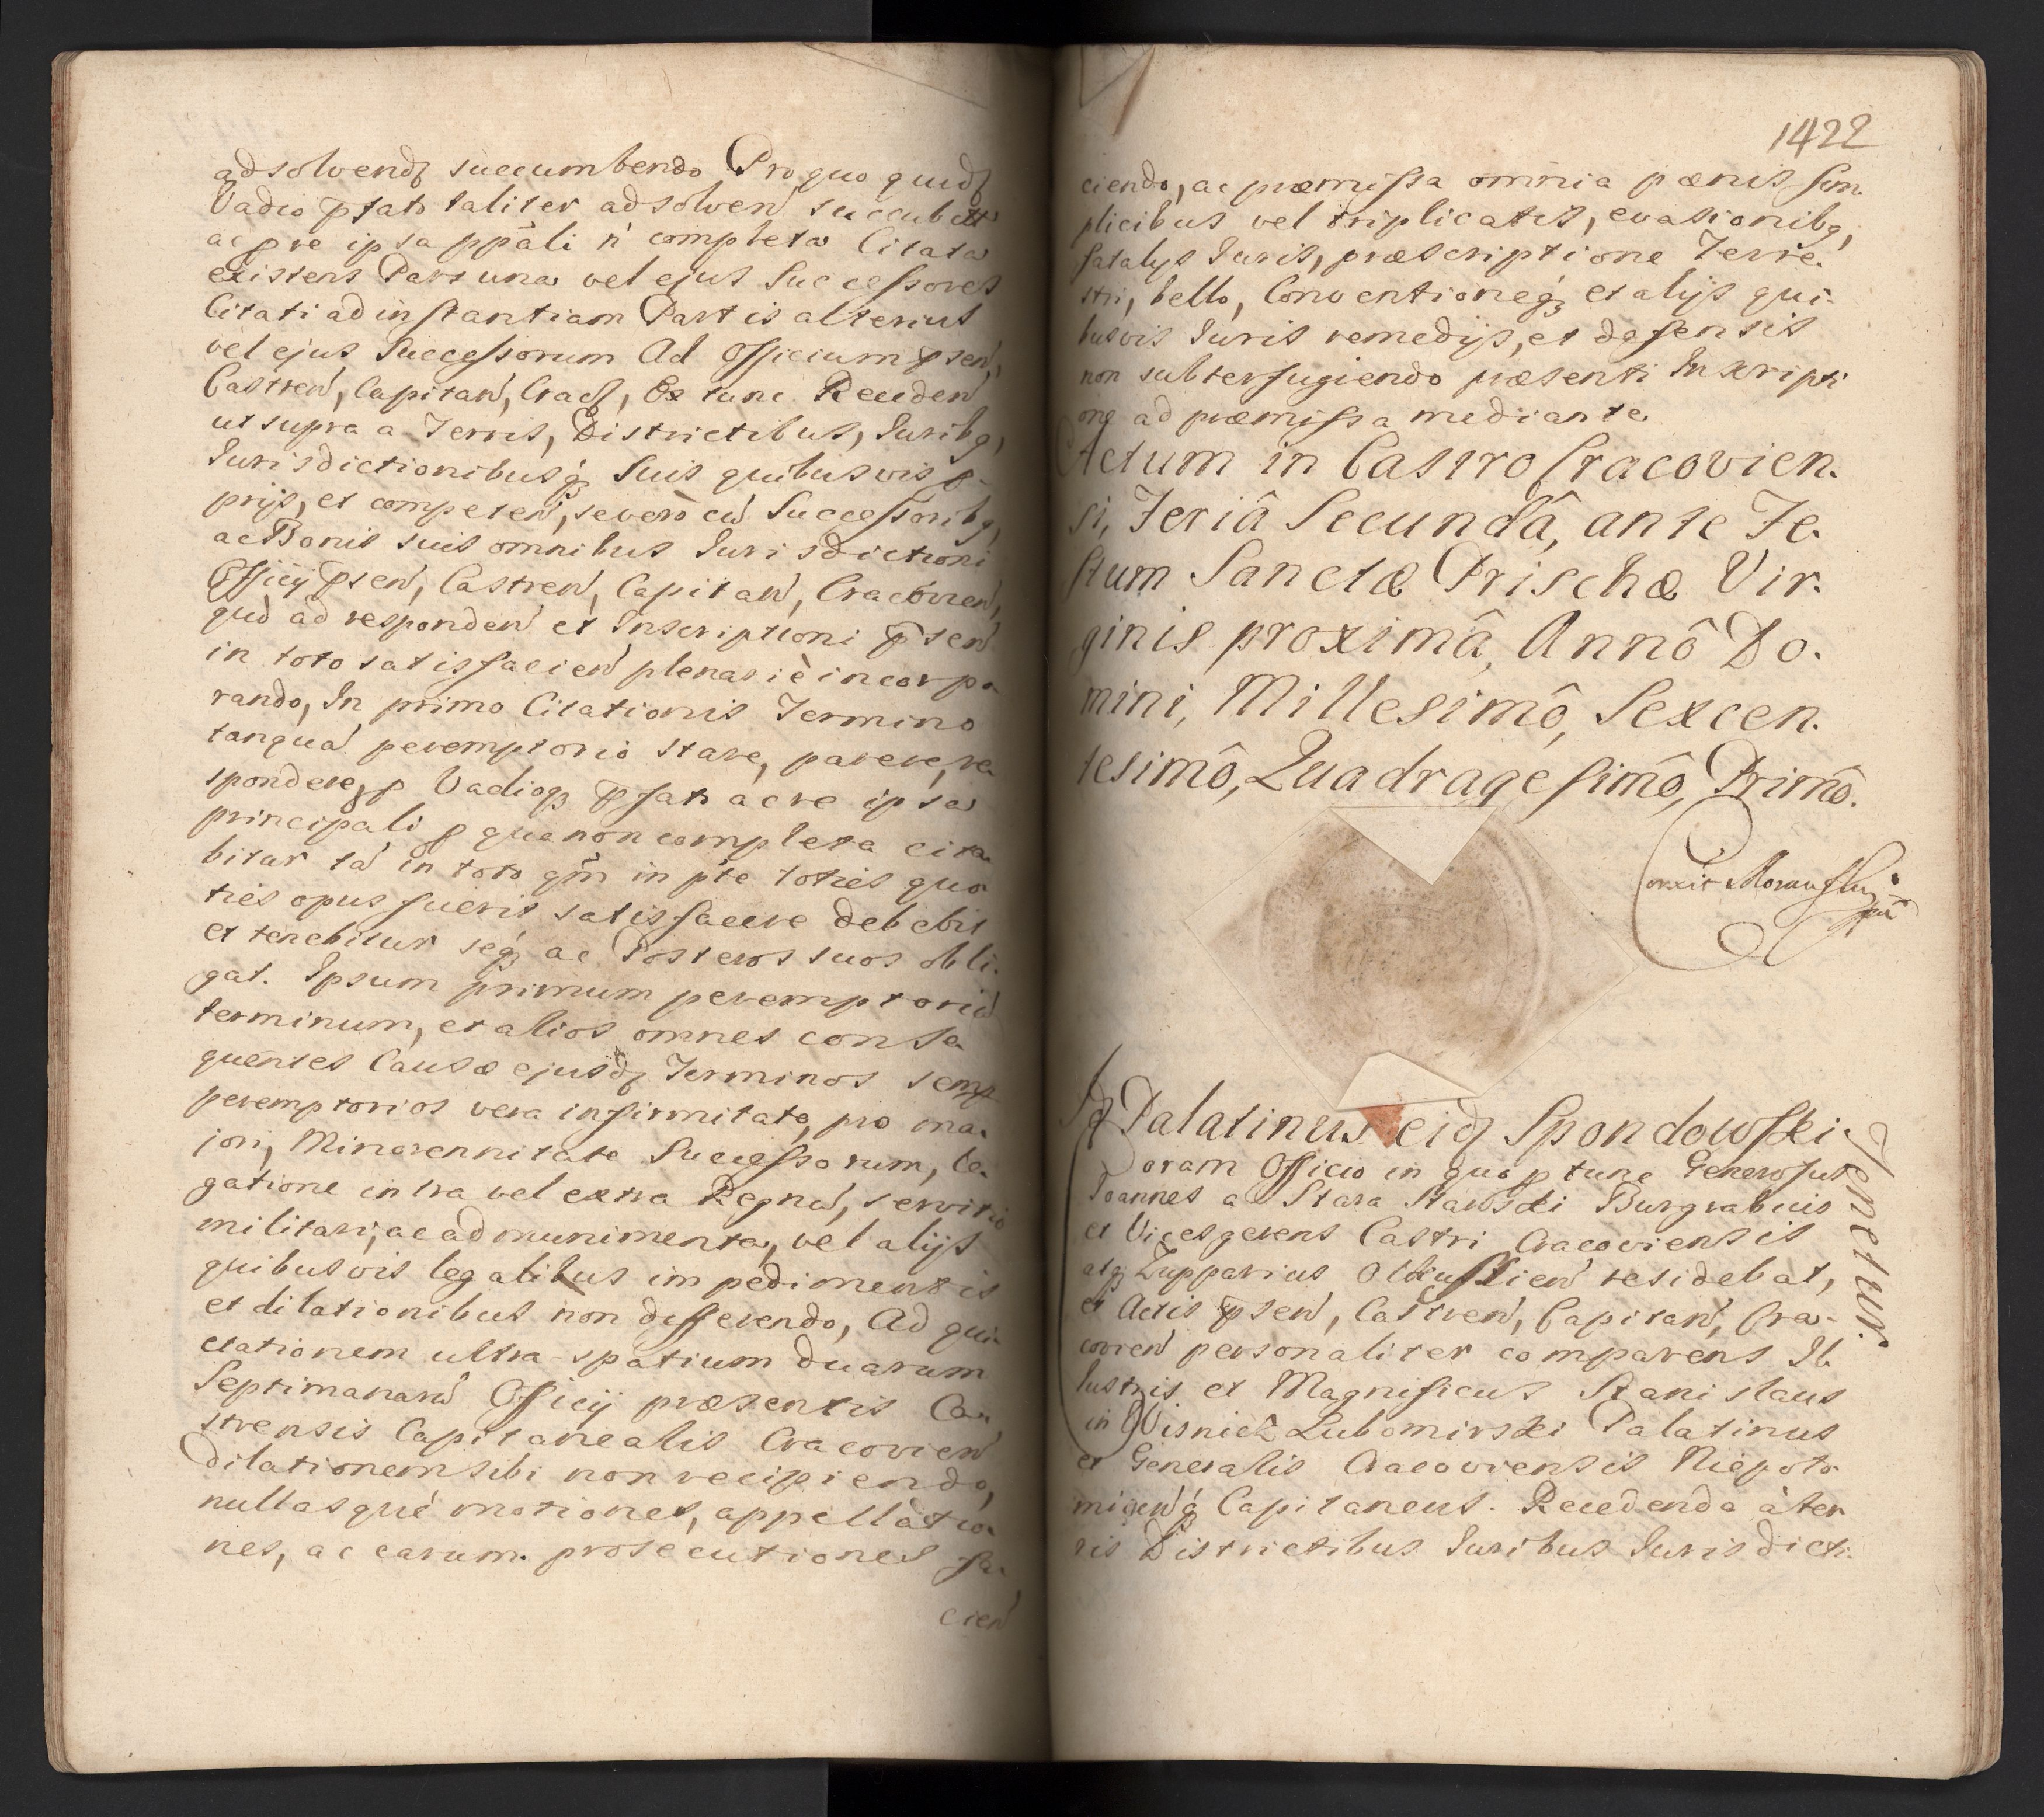 adsolvendȝ succumbendo Pro quo quidȝ
Vadio ptato taliter adsolven succubitt
ac pre ipsa ppāli n completa Citata
existens Pars una vel ejus Successores
Citati ad instantiam Partis alterius
vel ejus Successorum Ad Officium psen,
Castren, Capitan, Crac, Ex tunc Receden
ut supra a Terris, Districtibus, Juribq,
Jurisdictionibusq Suis quibusvis p-
prijs, et competen, severò cu Successoribq,
ac Bonis suis omnibus Jurisdictioni
Officij psen, Castren, Capitan, Cracovien,
quò ad responden et Inscriptioni psen
in toto satisfacien plenariè incorpo-
rando, In primo Citationis Termino
tanqua peremptorio stare, parere, re-
spondere, p Vadioq pfato ac re ipsa
principali p qua non completa cita-
bitur ta in toto qm in pte toties quo
ties opus fuerit satisfacere debebit
et tenebitur seq ac Posteros suos obli-
gat. Ipsum primum peremptoriu
terminum, et alios omnes conse-
quentes Causæ ejusdȝ Terminos semp
peremptorios vera infirmitate, pro ma-
jori, Minorennitate Successorum, le-
gatione intra vel extra Regnu, servitio
militari, ac ad munimenta, vel alijs
quibusvis legalibus impedimentis
et dilationibus non differendo, Ad qui-
etationem ultra spatium duarum
Septimanaru Officij præsentis Ca-
strensis Capitanealis Cracovien
dilationem sibi non recipiendo,
nullasquè motiones, appellatio-
nes, ac earum prosecutiones fa-
cien
1422
ciendo, ac præmissa omnia pænis sim-
plicibus vel triplicatis, evasionibq,
fatalys Juris, præscriptione Terre-
stri, bello, Conventioneq, et alijs qui-
busvis Juris remedijs, et defensis
non subterfugiendo præsenti Inscripti
one ad præmissa mediante
Actum in Castro Cracovien-
si, Feriâ Secundâ, ante Fe-
stum Sanctæ Prischæ Vir-
ginis proximâ, Annô Do-
mini, Millesimô, Sexcen-
tesimô, Quadragesimô, Primô.
Correxit
Palatinus eidȝ Spondowski
Tenetur.
Coram Officio in quo p tunc Generosus
Joannes a Stara Stawski Burgrabius
et Vicesgerens Castri Cracoviensis
atq Zupparius Olkuszien residebat,
et Actis psen, Castren, Capitan, Cra-
covien personaliter comparens Il-
lustris et Magnificus Stanislaus
in Wisnicz Lubomirski Palatinus
et Generalis Cracoviensis Niepoło-
micenq Capitaneus. Recedendo à ter-
ris Districtibus Juribus Jurisdicti-